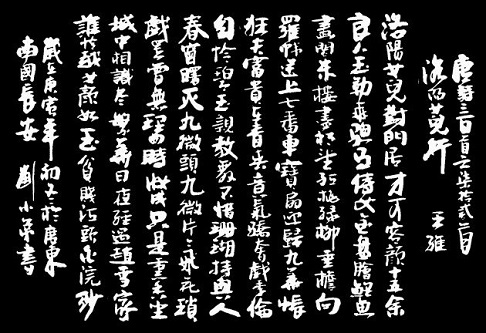 唐詩三百首之柒拾貳首
洛陽女兒行 王維
洛陽女兒對門居才可容顏十五余
良人玉勒乘驄馬侍女金盤膾鯉魚
畫閣朱樓盡相望紅桃綠柳垂簷向
羅帷送上七香車寶扇迎歸九華帳
狂夫富貴在青春意氣驕奢劇季倫
自憐碧玉親教舞不惜珊瑚持與人
春窗曙滅九微火九微片片飛花瑣
戲罷曾無理曲時妝成只是熏香坐
城中相識盡繁華日夜經過趙李家
誰憐越女顏如玉貧賤江頭自浣紗
歲在庚寅年初冬於廣東
南國長安 劉小書